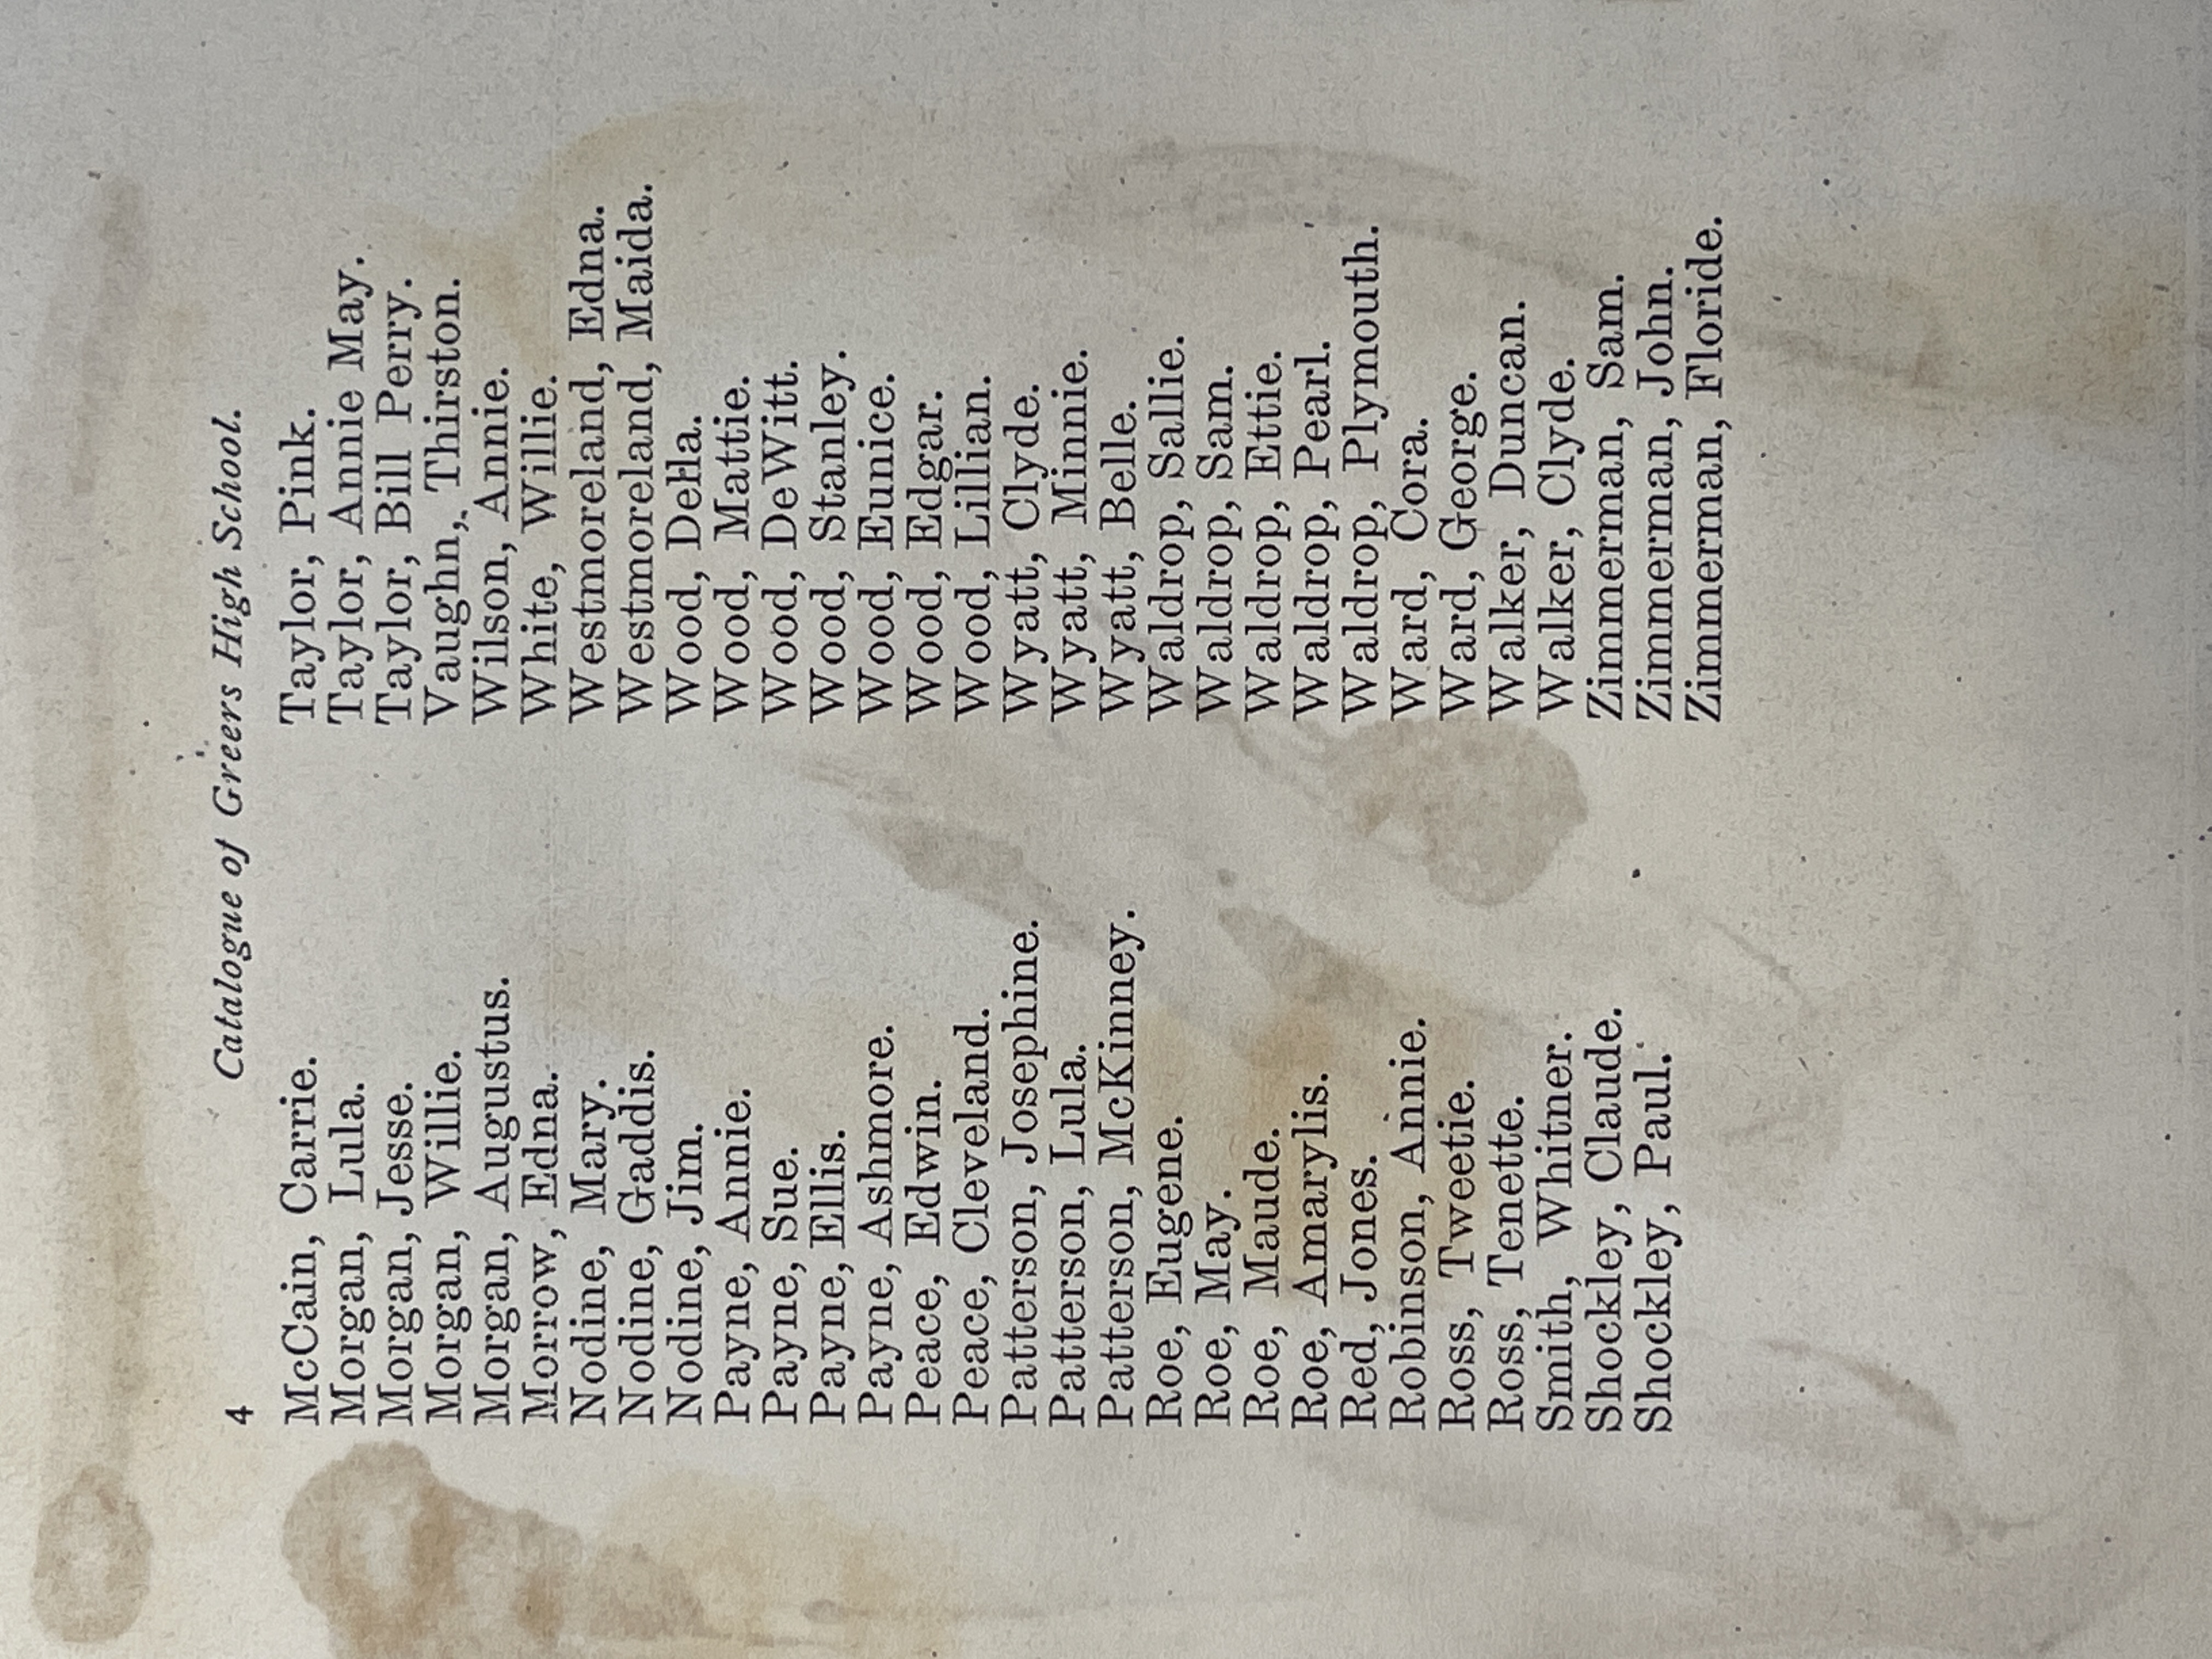 4 Catalogue of Greers High School.
McCain, Carrie.
Morgan, Lula.
Morgan, Jesse.
Morgan, Willie.
Morgan, Augustus.
Morrow, Edna.
Nodine, Mary.
Nodine, Gaddis.
Nodine, Jim.
Payne, Annie.
Payne, Sue.
Payne, Ellis.
Payne, Ashmore.
Peace, Edwin.
Peace, Cleveland.
Patterson, Josephine.
Patterson, Lula.
Patterson, McKinney.
Roe, Eugene.
Roe, May.
Roe, Maude.
Roe, Amarylis.
Red, Jones.
Robinson, Annie.
Ross, Tweetie.
Ross, Tenette.
Smith, Whitner.
Shockley, Claude.
Shockley, Paul.
Taylor, Pink.
Taylor, Annie May.
Taylor, Bill Perry.
Vaughn, Thirston.
Wilson, Annie.
White, Willie.
Westmoreland, Edna.
Westmoreland, Maida.
Wood, Della.
Wood, Mattie.
Wood, DeWitt.
Wood, Stanley.
Wood, Eunice.
Wood, Edgar.
Wood, Lillian.
Wyatt, Clyde.
Wyatt, Minnie.
Wyatt, Belle.
Waldrop, Sallie.
Waldrop, Sam.
Waldrop, Ettie.
Waldrop, Pearl.
Waldrop, Plymouth.
Ward, Cora.
Ward, George.
Walker, Duncan.
Walker, Clyde.
Zimmerman, Sam.
Zimmerman, John.
Zimmerman, Floride.